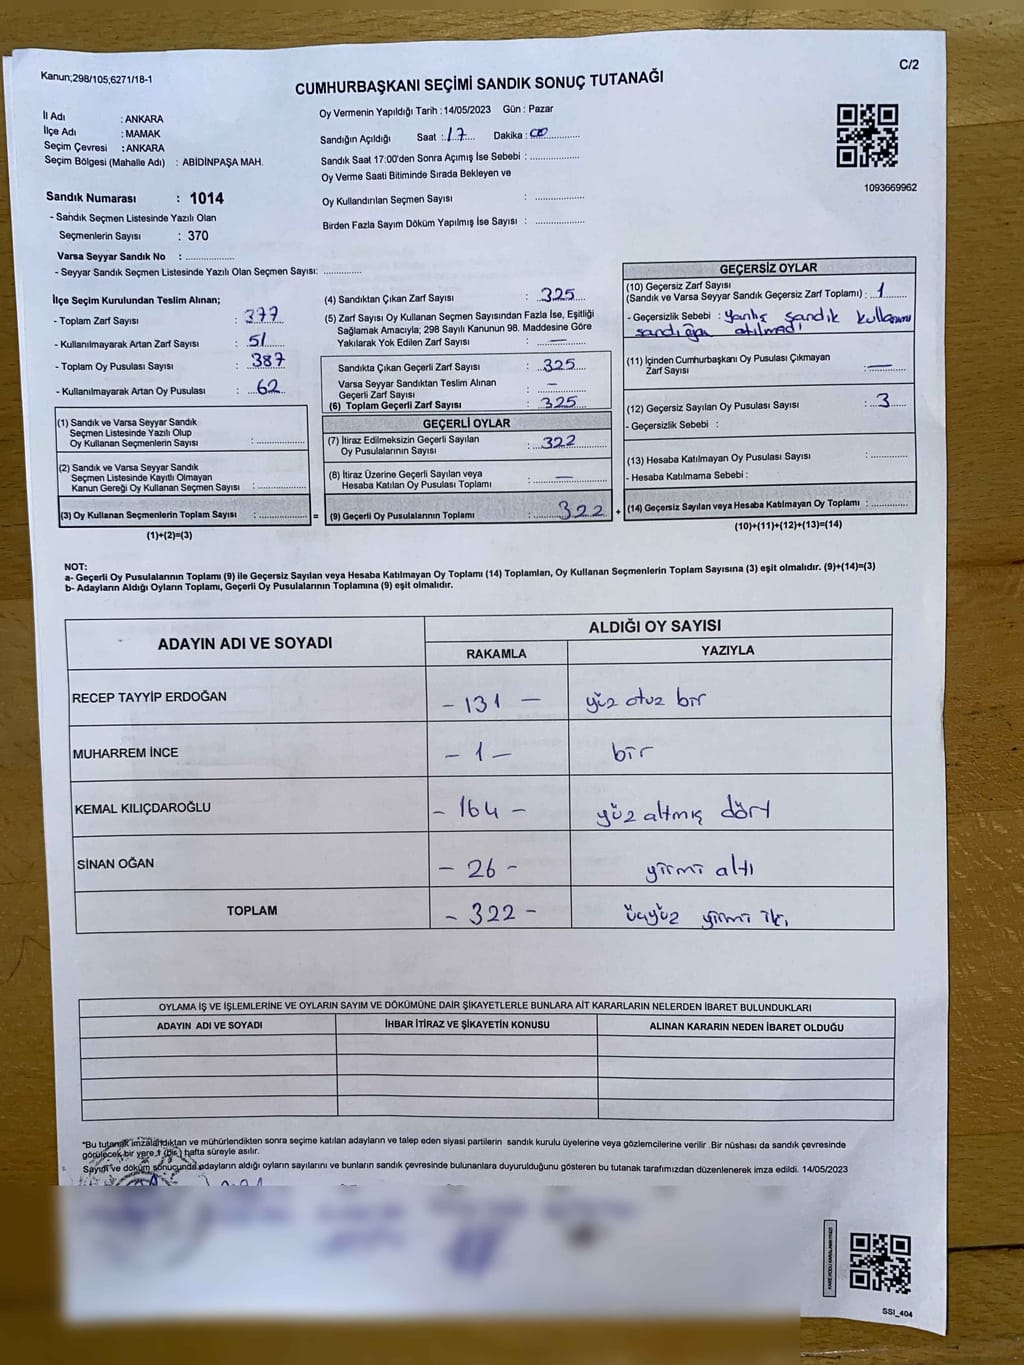 Kanun;298/105;6271/18-1
C/2
CUMHURBAŞKANI SEÇİMİ SANDIK SONUÇ TUTANAĞI
İl Adı : ANKARA
İlçe Adı : MAMAK
Seçim Çevresi : ANKARA
Seçim Bölgesi (Mahalle Adı) : ABİDİNPAŞA MAH.
Oy Vermenin Yapıldığı Tarih : 14/05/2023 Gün : Pazar
Sandığın Açıldığı Saat : 17 Dakika : 00
Sandık Saat 17:00'den Sonra Açımış İse Sebebi :
Oy Verme Saati Bitiminde Sırada Bekleyen ve
Oy Kullandırılan Seçmen Sayısı :
Birden Fazla Sayım Döküm Yapılmış İse Sayısı :
1093669962
Sandık Numarası : 1014
- Sandık Seçmen Listesinde Yazılı Olan
Seçmenlerin Sayısı : 370
Varsa Seyyar Sandık No :
- Seyyar Sandık Seçmen Listesinde Yazılı Olan Seçmen Sayısı:
İlçe Seçim Kurulundan Teslim Alınan;
- Toplam Zarf Sayısı : 377
- Kullanılmayarak Artan Zarf Sayısı : 51
- Toplam Oy Pusulası Sayısı : 387
- Kullanılmayarak Artan Oy Pusulası : 62
(1) Sandık ve Varsa Seyyar Sandık
Seçmen Listesinde Yazılı Olup
Oy Kullanan Seçmenlerin Sayısı :
(2) Sandık ve Varsa Seyyar Sandık
Seçmen Listesinde Kayıtlı Olmayan
Kanun Gereği Oy Kullanan Seçmen Sayısı :
(3) Oy Kullanan Seçmenlerin Toplam Sayısı : =
(1)+(2)=(3)
(4) Sandıktan Çıkan Zarf Sayısı : 325
(5) Zarf Sayısı Oy Kullanan Seçmen Sayısından Fazla İse, Eşitliği
Sağlamak Amacıyla; 298 Sayılı Kanunun 98. Maddesine Göre
Yakılarak Yok Edilen Zarf Sayısı : —
Sandıkta Çıkan Geçerli Zarf Sayısı : 325
Varsa Seyyar Sandıktan Teslim Alınan
Geçerli Zarf Sayısı : —
(6) Toplam Geçerli Zarf Sayısı : 325
GEÇERLİ OYLAR
(7) İtiraz Edilmeksizin Geçerli Sayılan
Oy Pusulalarının Sayısı : 322
(8) İtiraz Üzerine Geçerli Sayılan veya
Hesaba Katılan Oy Pusulası Toplamı : —
(9) Geçerli Oy Pusulalarının Toplamı : 322 +
GEÇERSİZ OYLAR
(10) Geçersiz Zarf Sayısı
(Sandık ve Varsa Seyyar Sandık Geçersiz Zarf Toplamı) : 1
- Geçersizlik Sebebi : Yanlış sandık kullanımı
sandığa atılmadı
(11) İçinden Cumhurbaşkanı Oy Pusulası Çıkmayan
Zarf Sayısı : —
(12) Geçersiz Sayılan Oy Pusulası Sayısı : 3
- Geçersizlik Sebebi :
(13) Hesaba Katılmayan Oy Pusulası Sayısı :
- Hesaba Katılmama Sebebi :
(14) Geçersiz Sayılan veya Hesaba Katılmayan Oy Toplamı :
(10)+(11)+(12)+(13)=(14)
NOT:
a- Geçerli Oy Pusulalarının Toplamı (9) ile Geçersiz Sayılan veya Hesaba Katılmayan Oy Toplamı (14) Toplamları, Oy Kullanan Seçmenlerin Toplam Sayısına (3) eşit olmalıdır. (9)+(14)=(3)
b- Adayların Aldığı Oyların Toplamı, Geçerli Oy Pusulalarının Toplamına (9) eşit olmalıdır.
ADAYIN ADI VE SOYADI
ALDIĞI OY SAYISI
RAKAMLA YAZIYLA
RECEP TAYYİP ERDOĞAN - 131 - yüz otuz bir
MUHARREM İNCE - 1 - bir
KEMAL KILIÇDAROĞLU - 164 - yüz altmış dört
SİNAN OĞAN - 26 - yirmi altı
TOPLAM - 322 - üçyüz yirmi iki
OYLAMA İŞ VE İŞLEMLERİNE VE OYLARIN SAYIM VE DÖKÜMÜNE DAİR ŞİKAYETLERLE BUNLARA AİT KARARLARIN NELERDEN İBARET BULUNDUKLARI
ADAYIN ADI VE SOYADI İHBAR İTİRAZ VE ŞİKAYETİN KONUSU ALINAN KARARIN NEDEN İBARET OLDUĞU
*Bu tutanak imzalandıktan ve mühürlendikten sonra seçime katılan adayların ve talep eden siyasi partilerin sandık kurulu üyelerine veya gözlemcilerine verilir .Bir nüshası da sandık çevresinde
görülecek bir yere 1 (bir) hafta süreyle asılır.
Sayım ve döküm sonucunda adayların aldığı oyların sayılarını ve bunların sandık çevresinde bulunanlara duyurulduğunu gösteren bu tutanak tarafımızdan düzenlenerek imza edildi. 14/05/2023
SSI_404